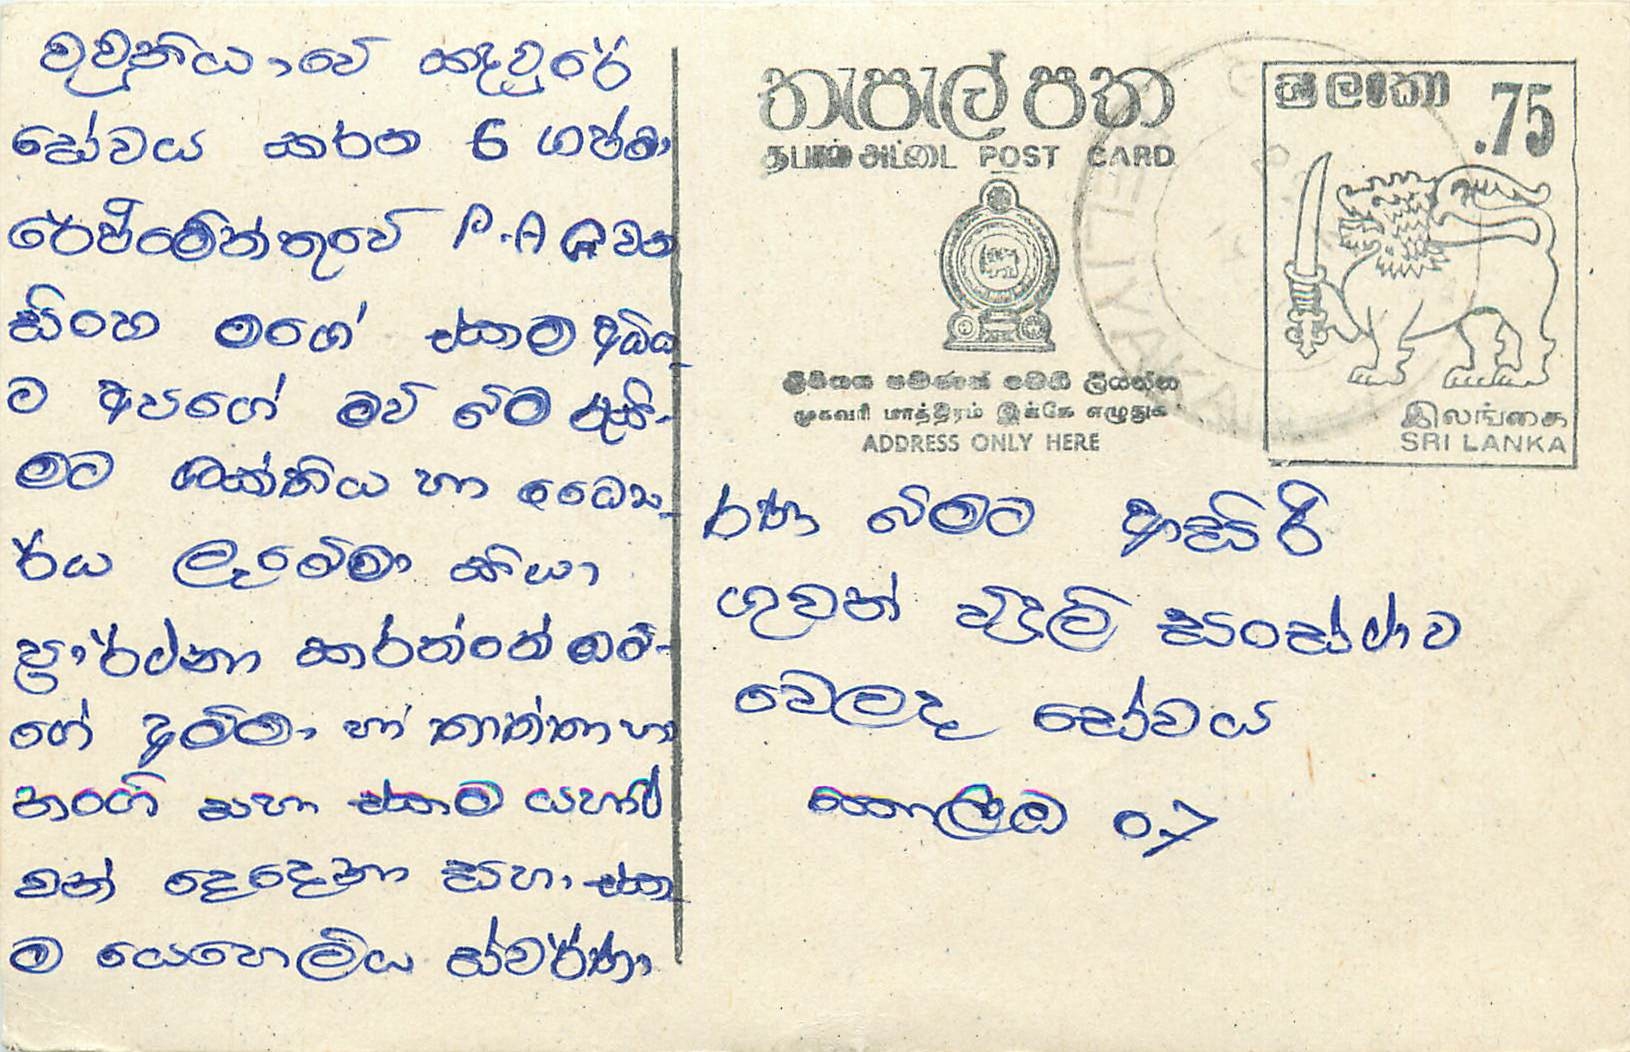 වවුනියාවේ කඳවුරේ
සේවය කරන 6 ගජබා
රෙජිමේන්තුවේ P.A ගුණවන
සිංහ මගේ එකම අයිය
ට අපගේ මව් බිම රැකී-
මට ශක්තිය හා ධෛය
ර්ය ලැබේවා කියා
ප්‍රාර්ථනා කරන්නේ මම-
ගේ අම්මා හා තාත්තා හා
නංගි සහා එකම යහළු
වන් දෙදෙනා සහා එක
ම යෙහෙලිය ස්වර්ණා
තැපැල් පත
தபால் அட்டை POST CARD
ලිපිනය පමණක් මෙහි ලියන්න
முகவரி மாத்திரம் இங்கே எழுதுக
ADDRESS ONLY HERE
ශ්‍රී ලංකා .75
இலங்கை
SRI LANKA
ELIYA
රණ බිමට ආසිරි
ගුවන් විදුලි සංස්ථාව
වෙලද සේවය
කොළඹ 07